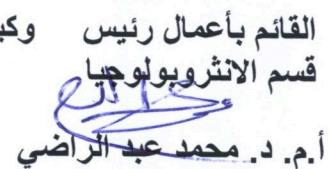 القائم بأعمال رئيس وكب
قسم الانثروبولوجيا
أ.م. د. محمد عبد الراضي